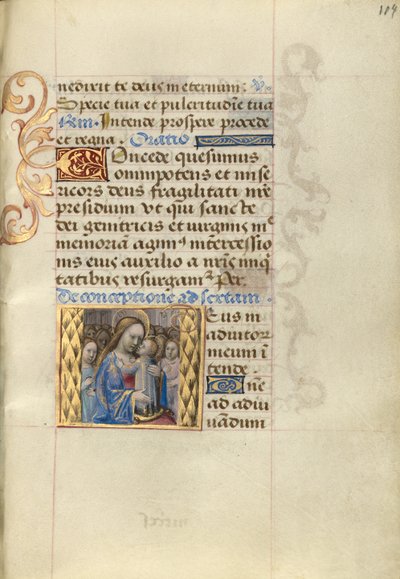 104
nedixit te deus in eternum: V.
Specie tua et pulcritudĩe tua
Rm. Intende prospere procede
et regna. Oratio
Concede quesumus
omnipotens et mise
ricors deus fragilitati nrẽ
presidium Vt qui sancte
dei genitricis et virginis mẽ
memoriam agimꝰ intercessio
nis eius auxilio a nrĩs iniq
tatibus resurgamꝰ Per.
De conceptione ad sextam.
Eus in
adiutor
meum ĩ
tende.
Dñe
ad adiu
uandum